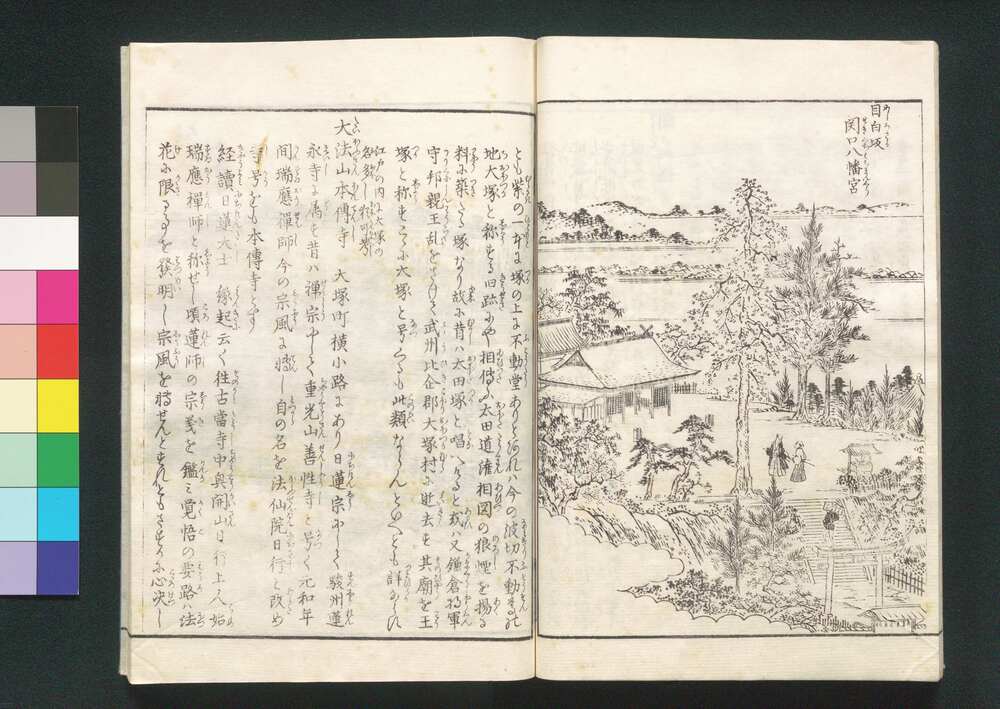 目白坂
関口八幡宮
とも紫の一本に塚の上に不動堂ありとあれハ今の波切不動
地大塚と称する旧跡にや相傳ふ太田道潅相図の狼煙を揚る
料に築ける塚なり故に昔ハ太田塚と唱へけると或ハ又鎌倉将軍
守邦親王乱をさけて武州比企郡大塚村に逝去す其廟を王
塚と称すこゝに大塚と号くるも此類ならんとゆへとも詳ならす
江戸の内に大塚の
大法山本傳寺 大塚町横小路にあり日蓮宗にして駿州蓮
永寺に属す昔ハ禅宗にして重光山善性寺と号く元和年
間瑞應禪師今の宗風に帰し自の名を法仙院日行と改め
寺号をも本傳寺とす
経讀日蓮大士 縁起云く往古當寺中興開山日行上人始
瑞應禪師と称せし頃蓮師の宗義を鑑ミ覚悟の要路ハ法
花に限るを發明し宗風を転せんとすれともさすかに心决し